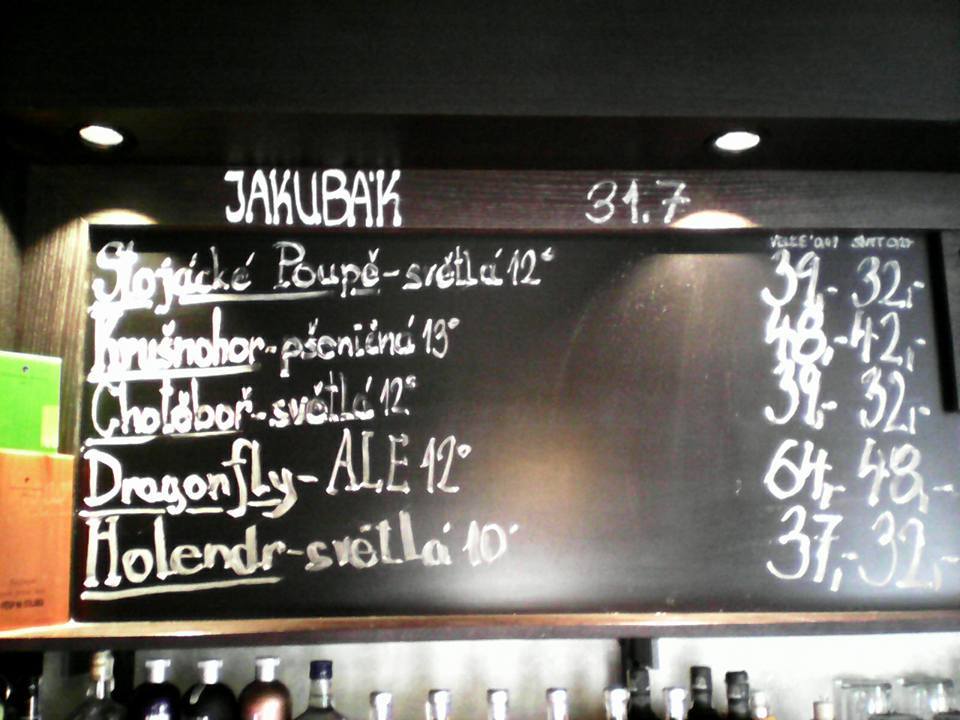 JAKUBÁK 31.7
Stojácké Poupě-světlá 12° 39,- 32,-
Krušnohor-pšeničná 13° 48,- 42,-
Chotěboř-světlá 12° 39,- 32,-
Dragonfly-ALE 12° 64,- 48,-
Holendr-světlá 10° 37,- 32,-